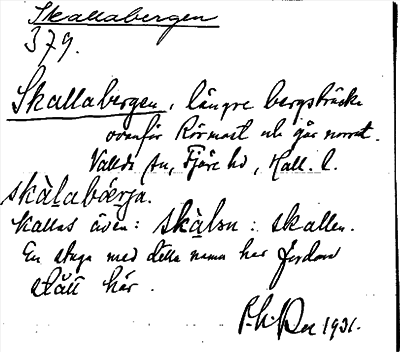 Skallabergen
379.
Skallabergen, längre bergsträcka
ovanför Rörmost och går norrut.
Vallda sn, Fjäre hd, Hall. l.
skàlabǿrja.
kallas även: skàlsn : skallen.
En stuga med detta namn har fordom
stått här.
1931.